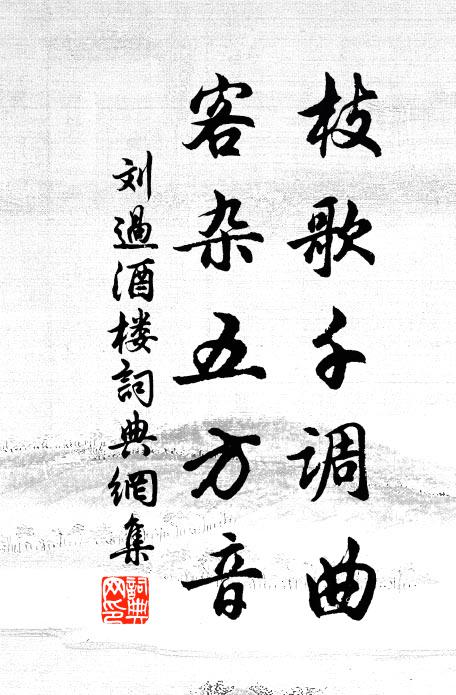 枝歌千调曲
客杂五方音
刘過酒楼詞典網集
詞典网印